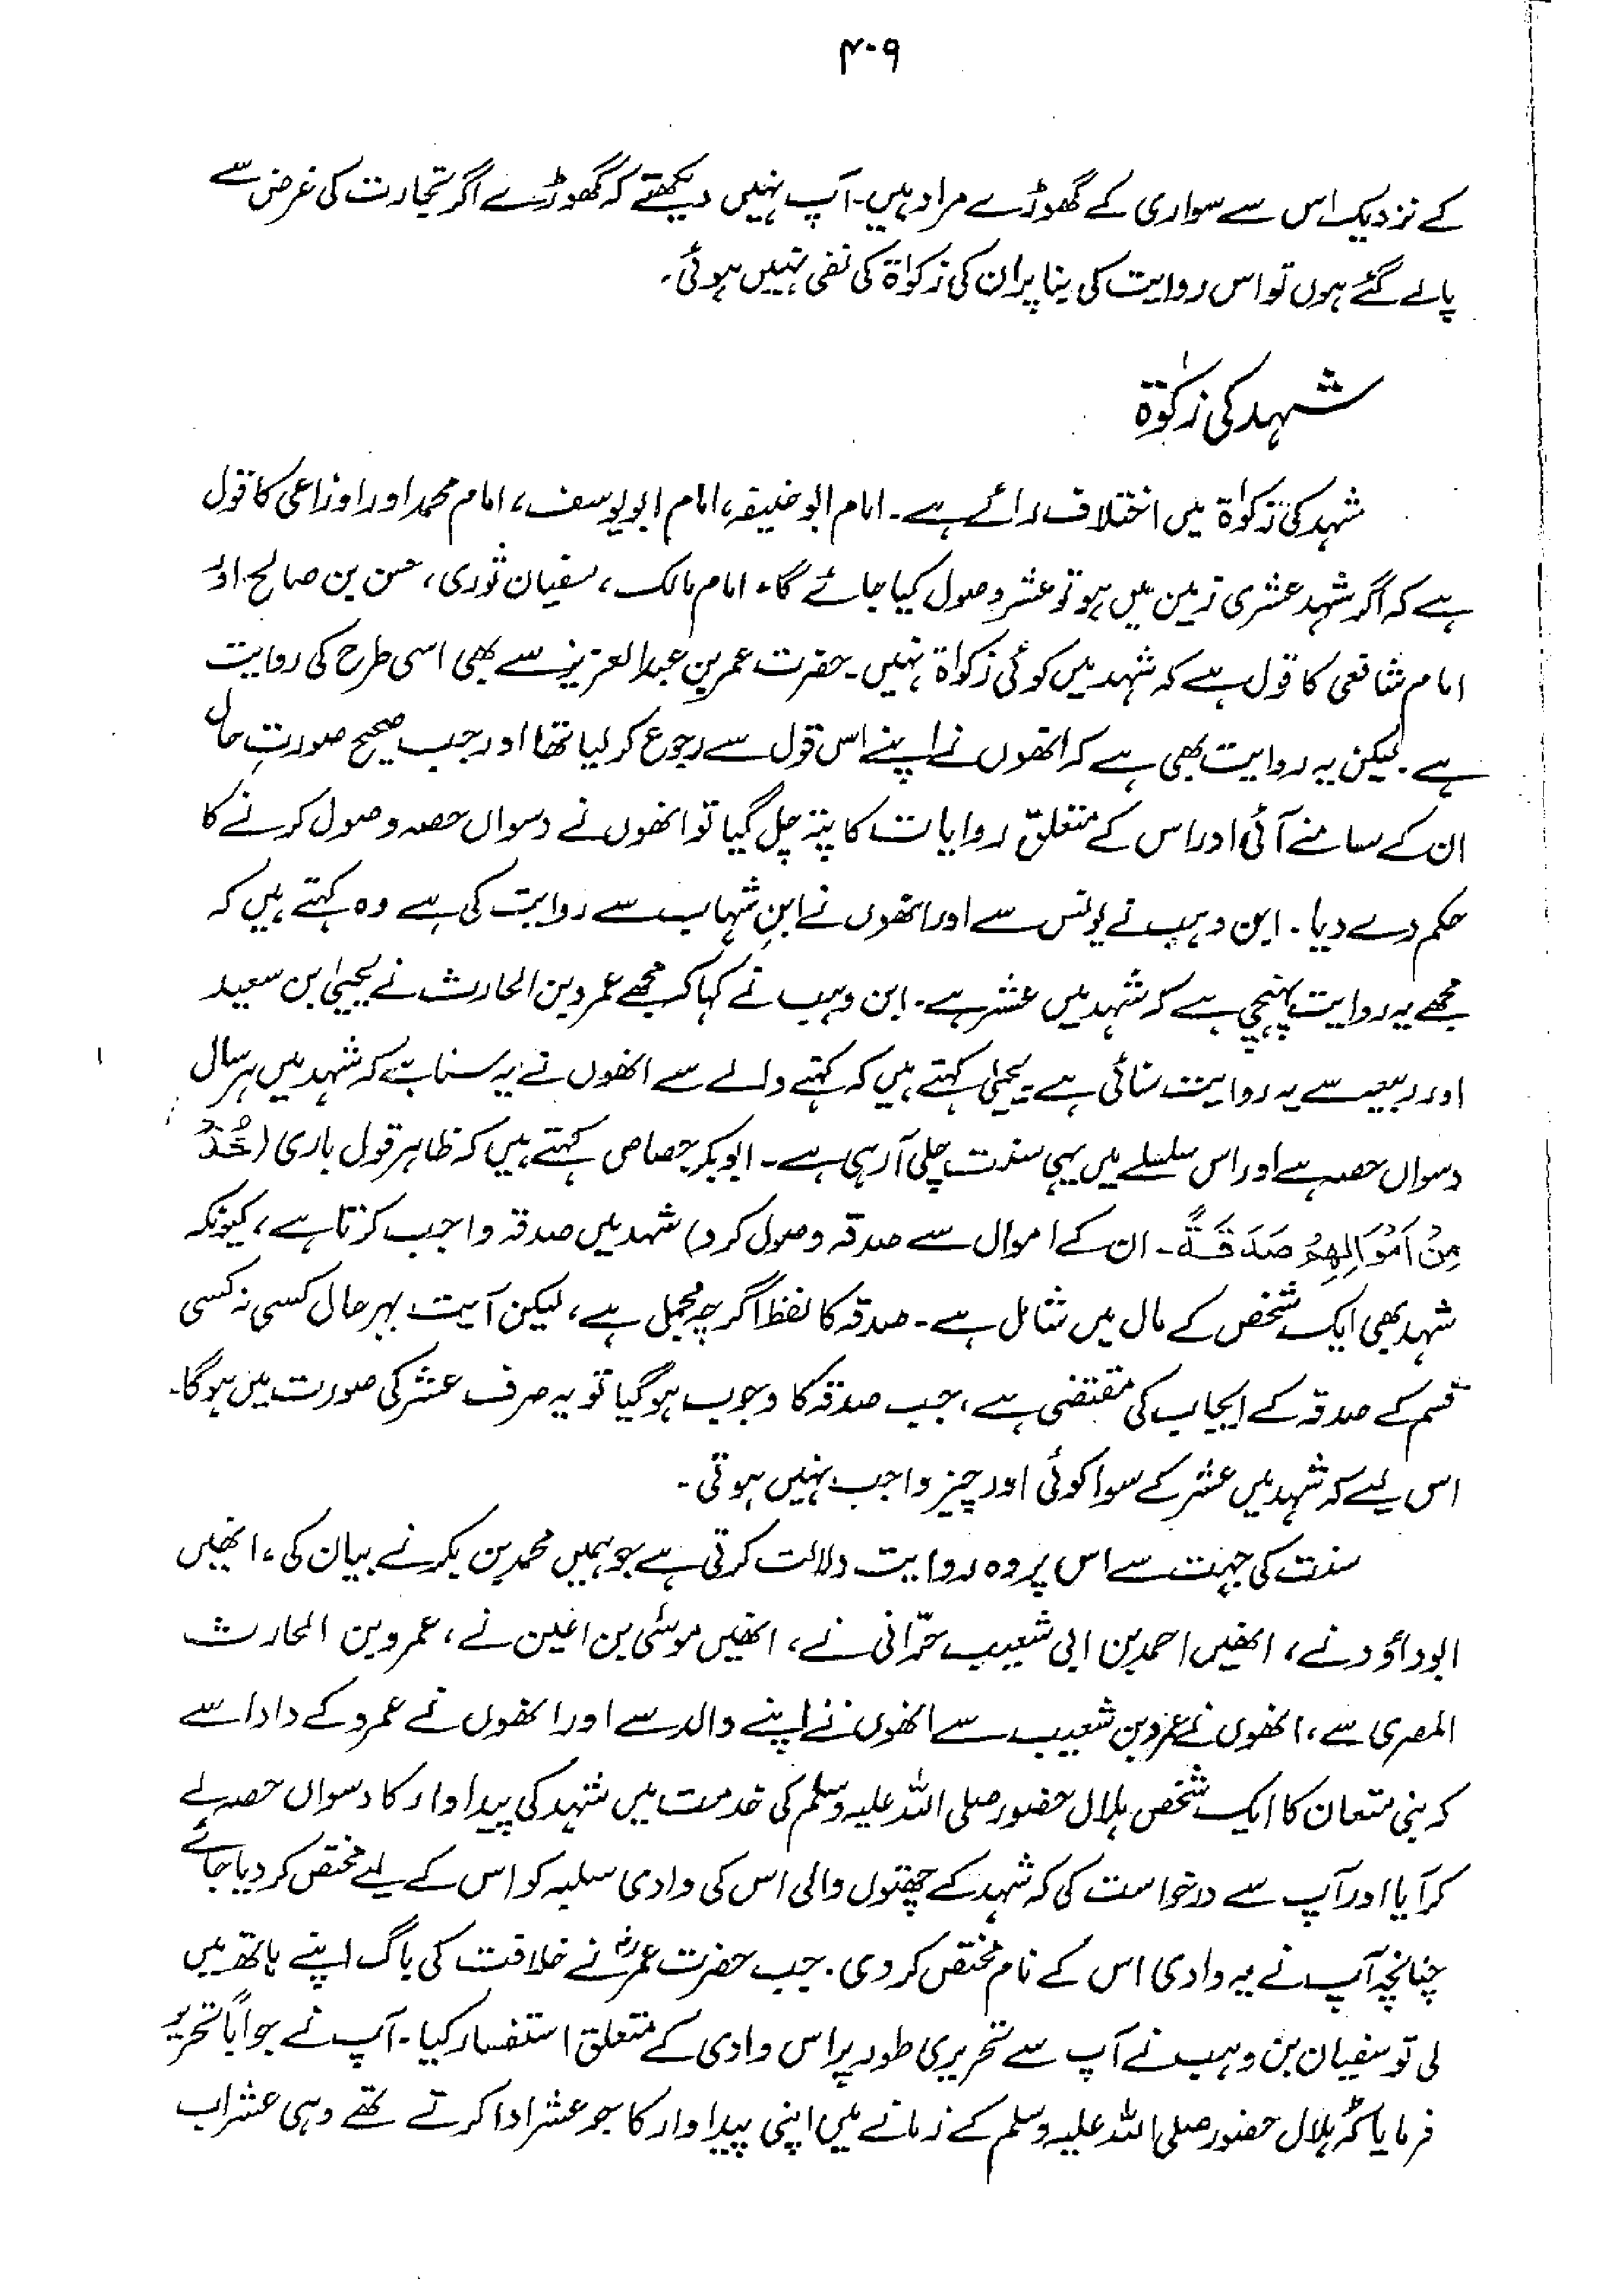 ۴۰۹
کے نزدیک اس سے سواری کے گھوڑے مراد ہیں۔ آپ نہیں دیکھتے کہ گھوڑے اگر تجارت کی غرض سے
پالے گئے ہوں تو اس روایت کی بنا پر ان کی زکوٰۃ کی نفی نہیں ہوئی۔
شہد کی زکوٰۃ
شہد کی زکوٰۃ میں اختلاف رائے ہے۔ امام ابوحنیفہ، امام ابویوسف، امام محمد اور اوزاعی کا قول
ہے کہ اگر شہد عشری زمین میں ہو تو عشر وصول کیا جائے گا۔ امام مالک، سفیان ثوری، حسن بن صالح اور
امام شافعی کا قول ہے کہ شہد میں کوئی زکوٰۃ نہیں۔ حضرت عمر بن عبدالعزیز سے بھی اسی طرح کی روایت
ہے۔ لیکن یہ روایت بھی ہے کہ انھوں نے اپنے اس قول سے رجوع کر لیا تھا اور جب صحیح صورتِ حال
ان کے سامنے آئی اور اس کے متعلّق روایات کا پتہ چل گیا تو انھوں نے دسواں حصہ وصول کرنے کا
حکم دے دیا۔ ابن وہب نے یونس سے اور انھوں نے ابنِ شہاب سے روایت کی ہے وہ کہتے ہیں کہ
مجھے یہ روایت پہنچی ہے کہ شہد میں عشر ہے۔ ابن وہب نے کہا کہ مجھے عمرو بن الحارث نے یحییٰ بن سعید
اور ربیعہ سے یہ روایت سنائی ہے۔ یحییٰ کہتے ہیں کہ کہنے والے سے انھوں نے یہ سنا ہے کہ شہد میں ہر سال
دسواں حصہ ہے اور اس سلسلے میں یہی سنت چلی آرہی ہے۔ ابوبکر جصاص کہتے ہیں کہ ظاہر قول باری (خُذْ
مِنْ اَمْوَالِهِمْ صَدَقَةً۔ ان کے اموال سے صدقہ وصول کرو) شہد میں صدقہ واجب کرتا ہے، کیونکہ
شہد بھی ایک شخص کے مال میں شامل ہے۔ صدقہ کا لفظ اگرچہ مجمل ہے، لیکن آیت بہرحال کسی نہ کسی
قسم کے صدقہ کے ایجاب کی مقتضی ہے، جب صدقہ کا وجوب ہوگیا تو یہ صرف عشر کی صورت میں ہوگا۔
اس لیے کہ شہد میں عشر کے سوا کوئی اور چیز واجب نہیں ہوتی۔
سنت کی جہت سے اس پر وہ روایت دلالت کرتی ہے جو ہمیں محمد بن بکر نے بیان کی، انھیں
ابوداؤد نے، انھیں احمد بن ابی شعیب حرّانی نے، انھیں موسٰی بن اعین نے، عمرو بن الحارث
المصری سے، انھوں نے عمرو بن شعیب سے انھوں نے اپنے والد سے اور انھوں نے عمرو کے دادا سے
کہ بنی متعان کا ایک شخص ہلال حضور صلی اللہ علیہ وسلم کی خدمت میں شہد کی پیداوار کا دسواں حصہ لے
کر آیا اور آپ سے درخواست کی کہ شہد کے چھتوں والی اس کی وادی سلبہ کو اس کے لیے مختص کر دیا جائے
چنانچہ آپ نے یہ وادی اس کے نام مختص کر دی۔ جب حضرت عمرؓ نے خلافت کی باگ اپنے ہاتھ میں
لی تو سفیان بن وہب نے آپ سے تحریری طور پر اس وادی کے متعلق استفسار کیا۔ آپ نے جواباً تحریر
فرمایا کہ ہلال حضور صلی اللہ علیہ وسلم کے زمانے میں اپنی پیداوار کا جو عشر ادا کرتے تھے وہی عشر اب